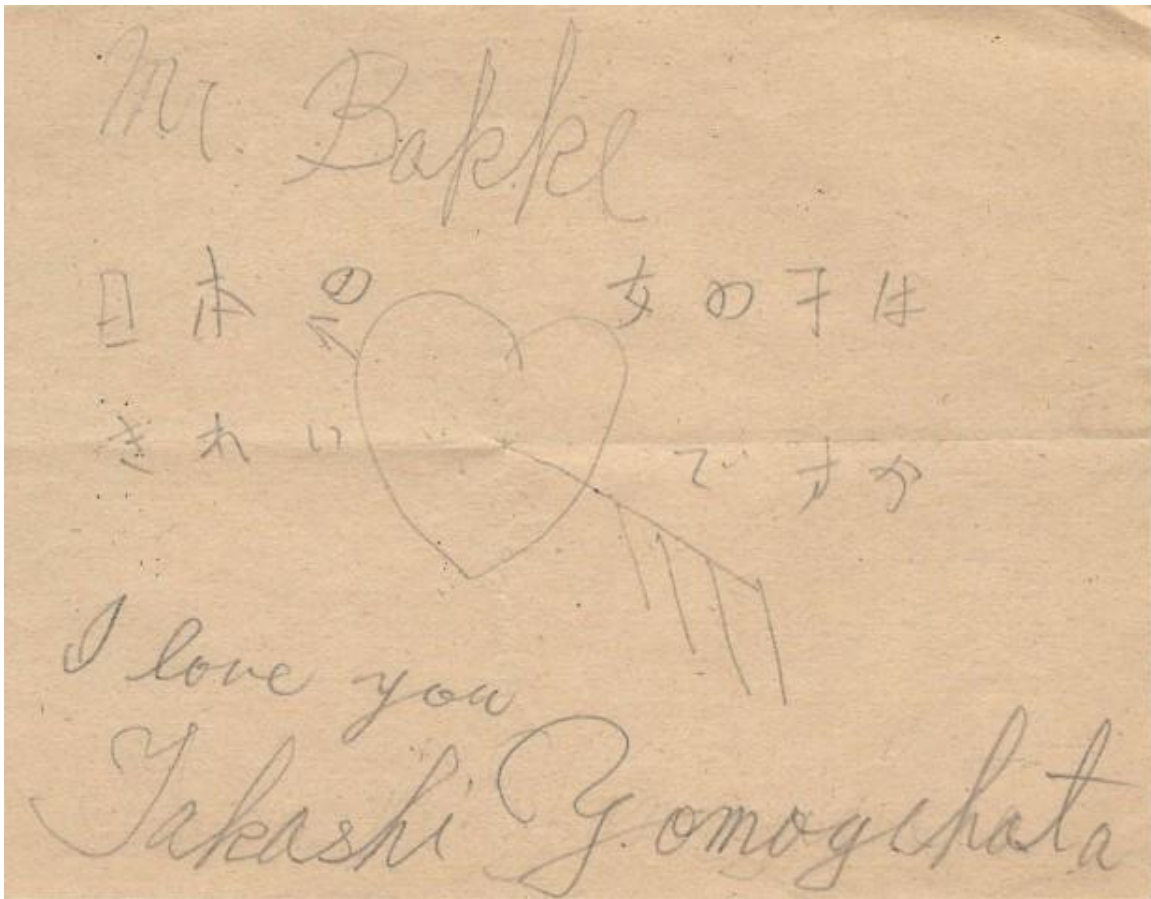 Mr. Bakke
日本の女の子は
きれいですか
I love you
Takashi Yomogihata